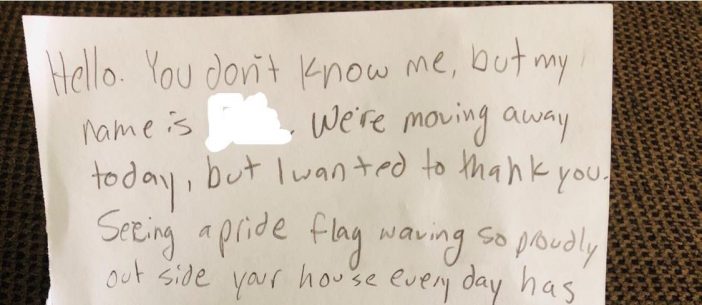 Hello. You don't know me, but my
name is . We're moving away
today, but I wanted to thank you.
Seeing a pride flag waving so proudly
out side your house every day has